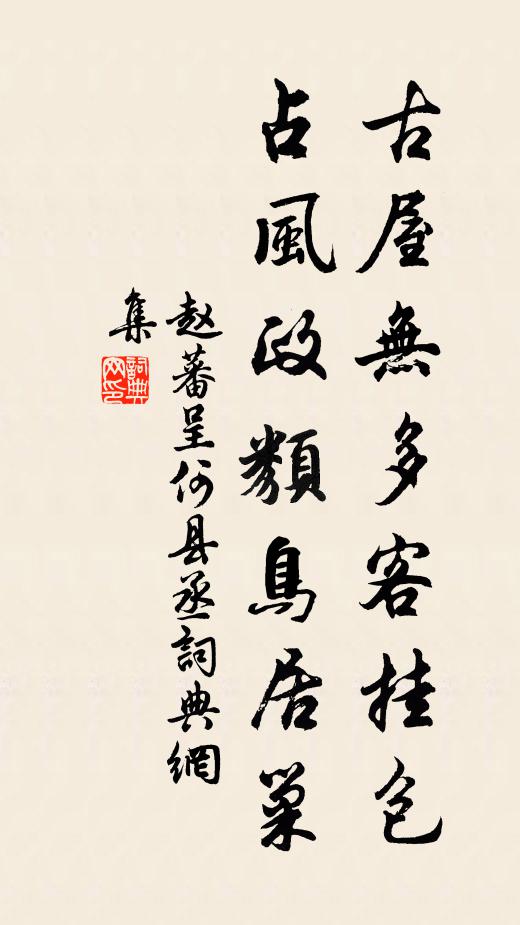 古屋無多客挂包
占風政類鳥居巢
赵蕃呈何县丞詞典網
集
詞典网印